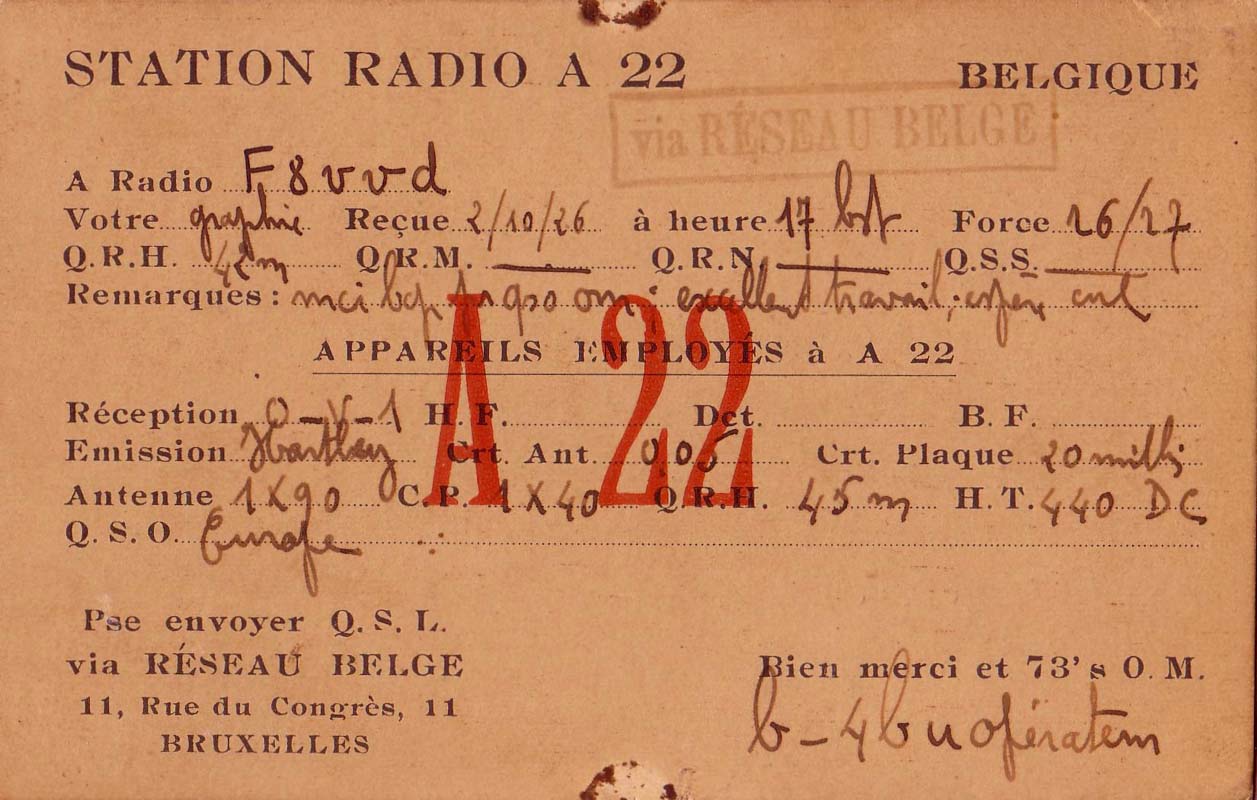 STATION RADIO A 22 BELGIQUE
via RÉSEAU BELGE
A Radio F8vvd
Votre graphie Reçue 2/10/26 à heure 17 bst Force 26/27
Q.R.H. 42m Q.R.M. — Q.R.N. — Q.S.S. —
Remarques: mci bcp pr qso om; excellent travail;
A 22
APPAREILS EMPLOYÉS à A 22
Réception O-V-1 H.F. Dct. B.F.
Emission Hartley Crt. Ant. 0,05 Crt. Plaque 20 millis
Antenne 1X90 C.P. 1X40 Q.R.H. 45m H.T. 440 DC
Q.S.O. Europe
Pse envoyer Q.S.L.
via RÉSEAU BELGE
11, Rue du Congrès, 11
BRUXELLES
Bien merci et 73's O.M.
b-4bu opérateur